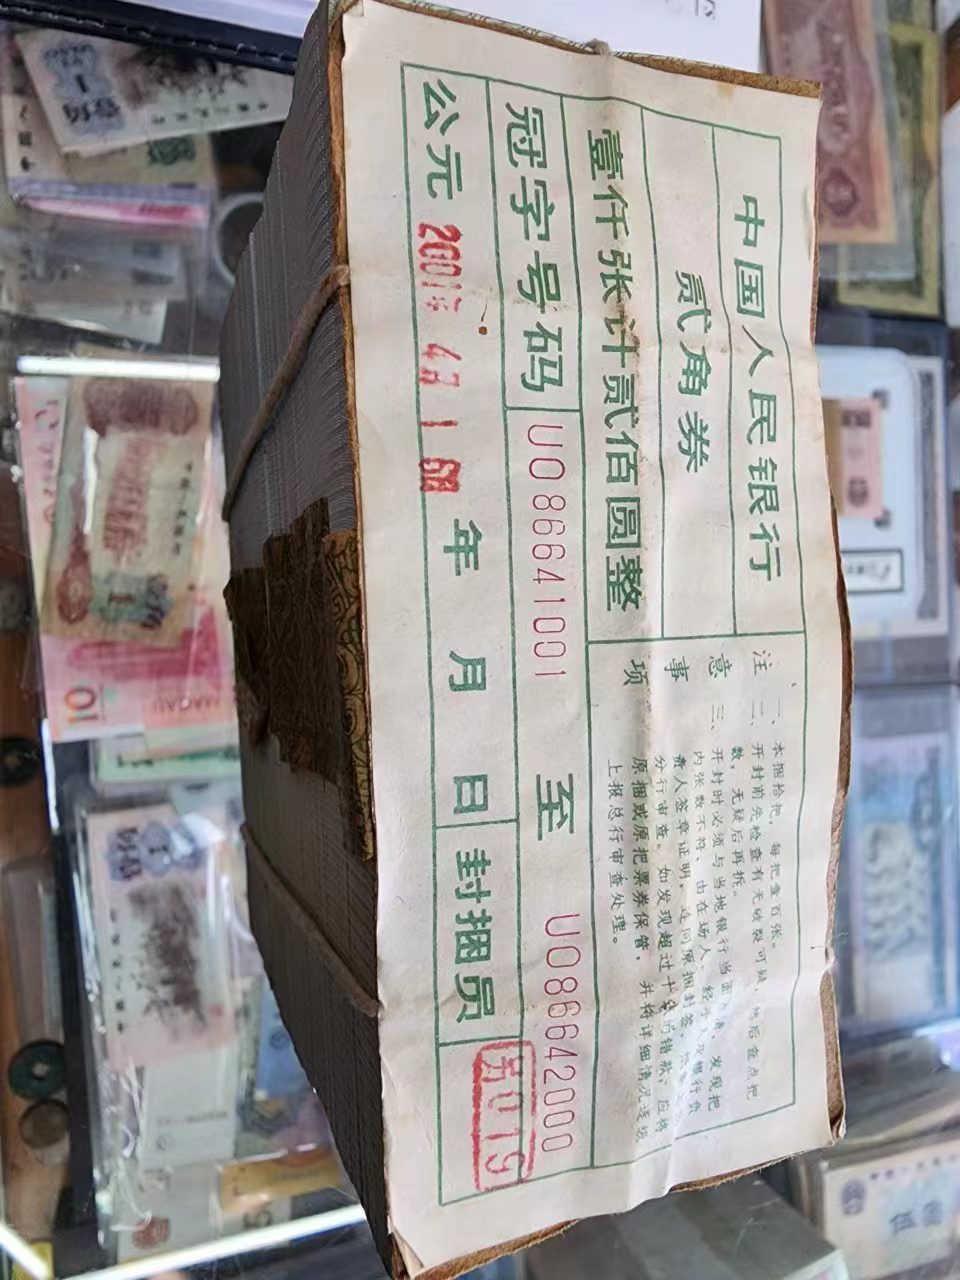 中国人民银行
贰角券
壹仟张计贰佰圆整
冠字号码 UO86641001 至 UO86642000
公元 2001年 4月 1日 年 月 日 封捆员 019
注意事项
一、本捆拾把，每把壹百张。
二、开封前先检查有无破裂可疑，然后查点把
数，无疑后再拆。
三、开封时必须与当地银行当面 发现把
内张数不符，由在场人、经 银行负
责人签章证明，连同原捆封签
分行审查。如发现超过十 错款，应将
原捆或原把票券保管，并将详细情况逐级
上报总行审查处理。
10
MACAU
1
伍圆